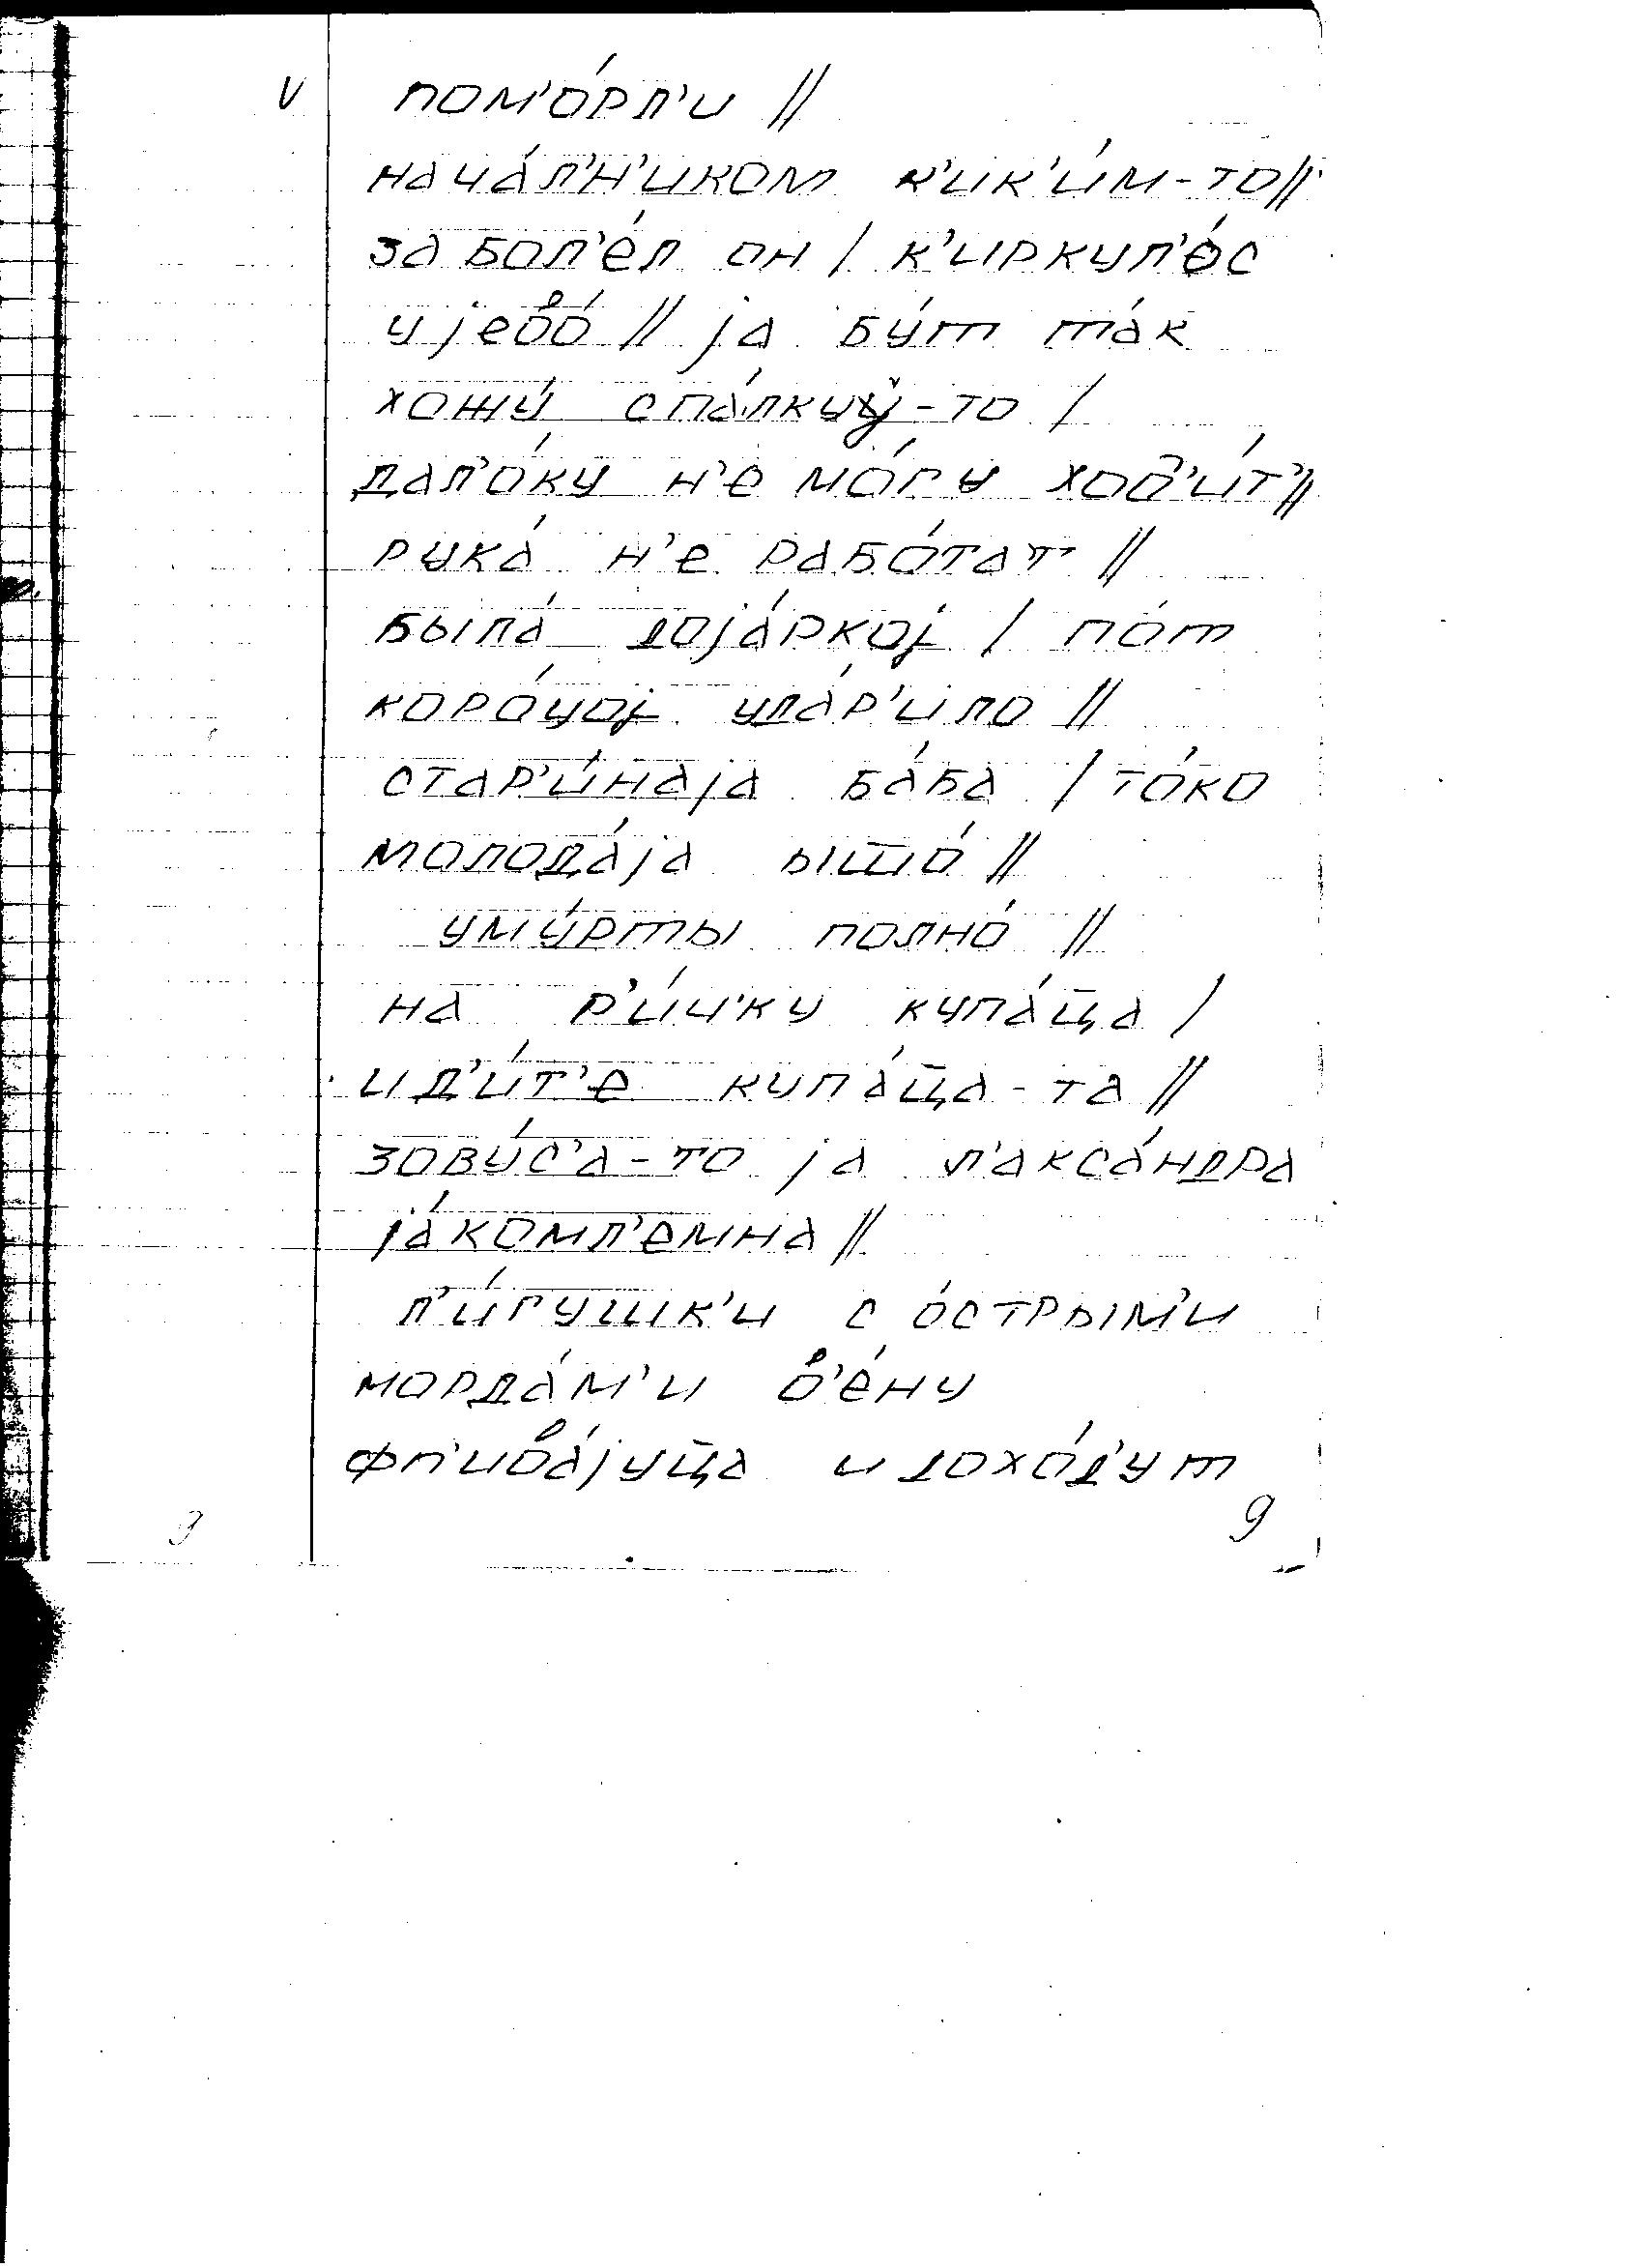 V пом'о́рл'и //
нача́л'н'иком к'ик'и́м-то //
забол'е́л он / к'иркул'о́с
у јево́ // ја бу́т та́к
хожу́ спа́лкуў-то /
дал'о́ку н'е мо́гу ход'и́т' //
рука́ н'е рабо́тат //
была́ доја́ркој / по́т
коро́уој уда́р'ило //
стар'и́наја ба́ба / то́ко
молода́ја ышо́ //
уму́рты полно́ //
на р'и́ч'ку купа́ц̄а /
ид'и́т'е купа́ц̄а-та //
зову́с'а-то ја л'акса́ндра
ја́комл'емна //
л'и́гушк'и с о́стрым'и
морда́м'и в'е́ну
фп'ива́јуц̄а и дохо́д'ут
9
9